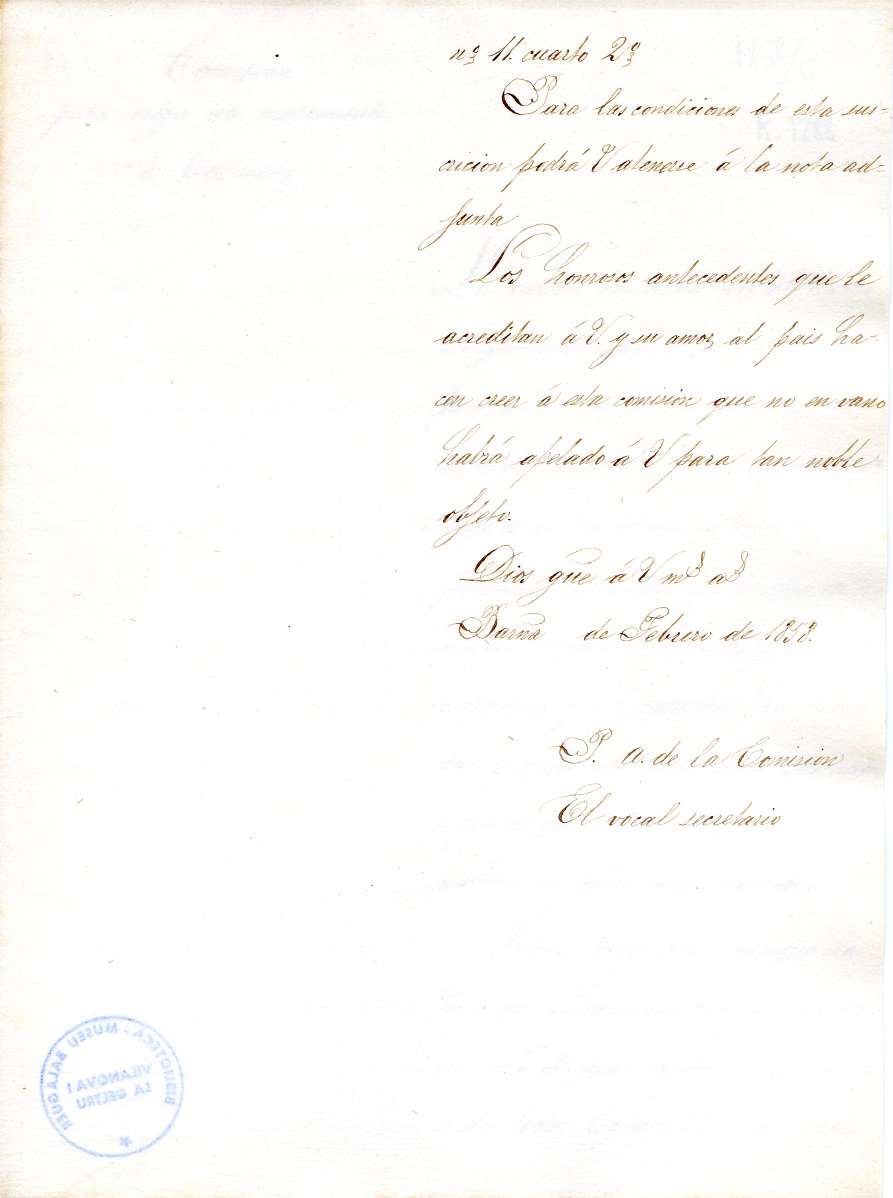 nº 11. cuarto 2º
Para las condiciones de esta sus-
cricion podrá V atenerse á la nota ad-
junta
Los honrosos antecedentes que le
acreditan á V. y su amor al pais ha-
cen creer á esta comision que no en vano
habrá apelado á V para tan noble
objeto.
Dios gue á V ms as
Barna de Febrero de 1858.
P. A. de la Comision
El vocal secretario
BIBLIOTECA - MUSEU BALAGUER
VILANOVA I
LA GELTRU